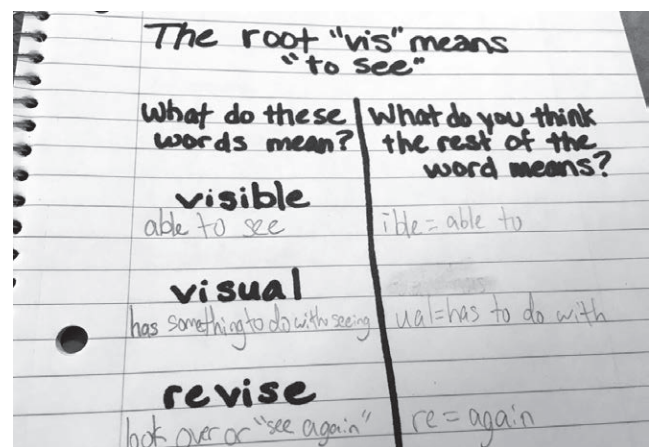 The root "vis" means
"to see"
What do these
words mean?
What do you think
the rest of the
word means?
visible
able to see
ible = able to
visual
has something to do with seeing
ual=has to do with
revise
look over or "see again"
re = again